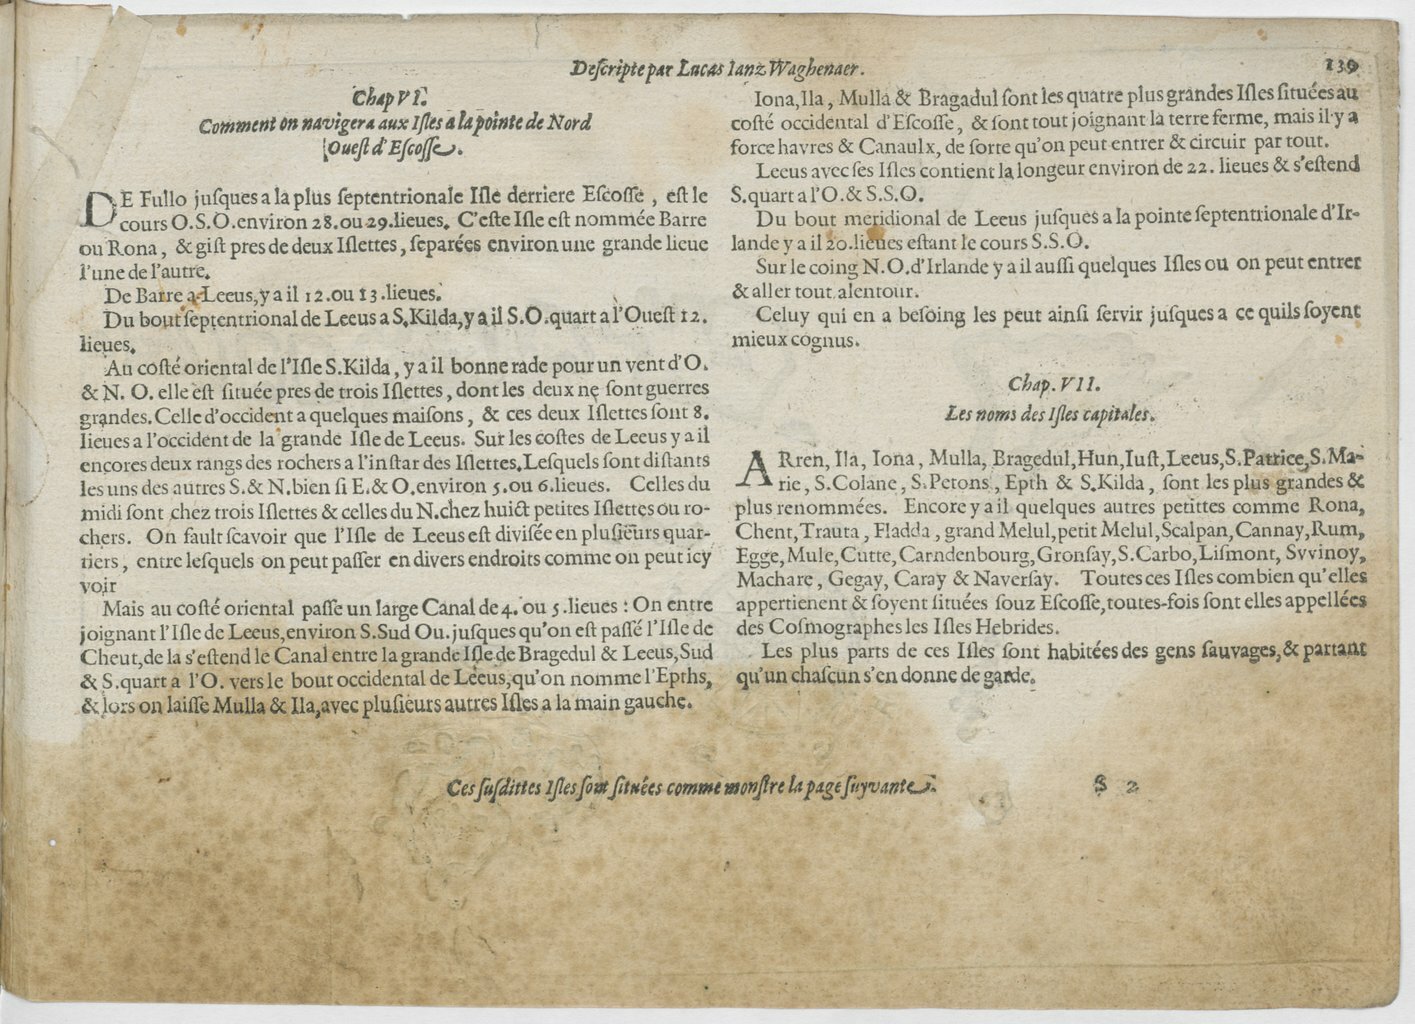 Descripte par Lucas Ianz Waghenaer.
139
Chap VI.
Comment on navigera aux Isles a la pointe de Nord
Ouest d'Escosse.
DE Fullo jusques a la plus septentrionale Isle derriere Escosse, est le
cours O.S.O. environ 28. ou 29. lieues. C'este Isle est nommée Barre
ou Rona, & gist pres de deux Islettes, separées environ une grande lieue
l'une de l'autre.
De Barre a Leeus, y a il 12. ou 13. lieues.
Du bout septentrional de Leeus a S. Kilda, y a il S.O. quart a l'Ouest 12.
lieues.
Au costé oriental de l'Isle S. Kilda, y a il bonne rade pour un vent d'O.
& N. O. elle est située pres de trois Islettes, dont les deux ne sont guerres
grandes. Celle d'occident a quelques maisons, & ces deux Islettes sont 8.
lieues a l'occident de la grande Isle de Leeus. Sur les costes de Leeus y a il
encores deux rangs des rochers a l'instar des Islettes. Lesquels sont distants
les uns des autres S. & N. bien si E. & O. environ 5. ou 6. lieues. Celles du
midi sont chez trois Islettes & celles du N. chez huict petites Islettes ou ro-
chers. On fault scavoir que l'Isle de Leeus est divisée en plusieurs quar-
tiers, entre lesquels on peut passer en divers endroits comme on peut icy
voir
Mais au costé oriental passe un large Canal de 4. ou 5. lieues : On entre
joignant l'Isle de Leeus, environ S. Sud Ou. jusques qu'on est passé l'Isle de
Cheut, de la s'estend le Canal entre la grande Isle de Bragedul & Leeus, Sud
& S. quart a l'O. vers le bout occidental de Leeus, qu'on nomme l'Epths,
& lors on laisse Mulla & Ila, avec plusieurs autres Isles a la main gauche.
Iona, Ila, Mulla & Bragadul sont les quatre plus grandes Isles situées au
costé occidental d'Escosse, & sont tout joignant la terre ferme, mais il y a
force havres & Canaulx, de sorte qu'on peut entrer & circuir par tout.
Leeus avec ses Isles contient la longeur environ de 22. lieues & s'estend
S. quart a l'O. & S.S.O.
Du bout meridional de Leeus jusques a la pointe septentrionale d'Ir-
lande y a il 20. lieues estant le cours S.S.O.
Sur le coing N.O. d'Irlande y a il aussi quelques Isles ou on peut entrer
& aller tout alentour.
Celuy qui en a besoing les peut ainsi servir jusques a ce quils soyent
mieux cognus.
Chap. VII.
Les noms des Isles capitales.
ARren, Ila, Iona, Mulla, Bragedul, Hun, Iust, Leeus, S. Patrice, S. Ma-
rie, S. Colane, S. Petons, Epth & S. Kilda, sont les plus grandes &
plus renommées. Encore y a il quelques autres petittes comme Rona,
Chent, Trauta, Fladda, grand Melul, petit Melul, Scalpan, Cannay, Rum,
Egge, Mule, Cutte, Carndenbourg, Gronsay, S. Carbo, Lismont, Svvinoy,
Machare, Gegay, Caray & Naversay. Toutes ces Isles combien qu'elles
appertienent & soyent situées souz Escosse, toutes-fois sont elles appellées
des Cosmographes les Isles Hebrides.
Les plus parts de ces Isles sont habitées des gens sauvages, & partant
qu'un chascun s'en donne de garde.
Ces susdittes Isles sont situées comme monstre la page suyvante.
S 2